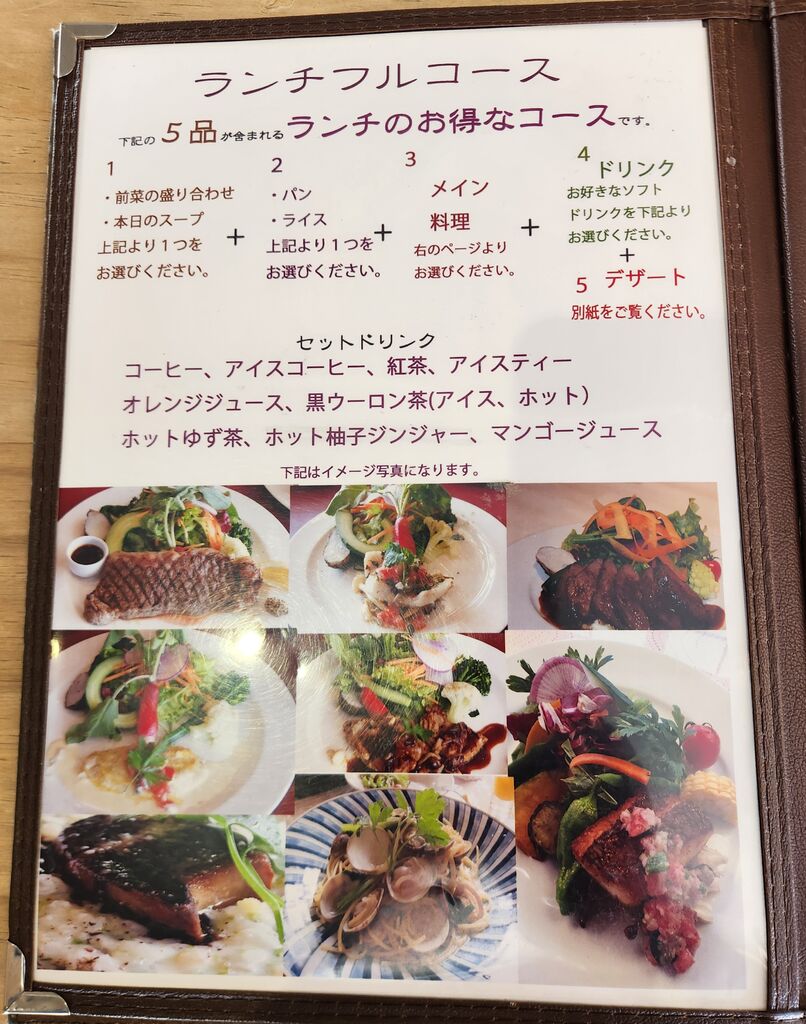 ランチフルコース
下記の５品が含まれるランチのお得なコースです。
1
・前菜の盛り合わせ
・本日のスープ
上記より１つを
お選びください。
+
2
・パン
・ライス
上記より１つを
お選びください。
+
3
メイン
料理
右のページより
お選びください。
+
4 ドリンク
お好きなソフト
ドリンクを下記より
お選びください。
+
5 デザート
別紙をご覧ください。
セットドリンク
コーヒー、アイスコーヒー、紅茶、アイスティー
オレンジジュース、黒ウーロン茶(アイス、ホット）
ホットゆず茶、ホット柚子ジンジャー、マンゴージュース
下記はイメージ写真になります。